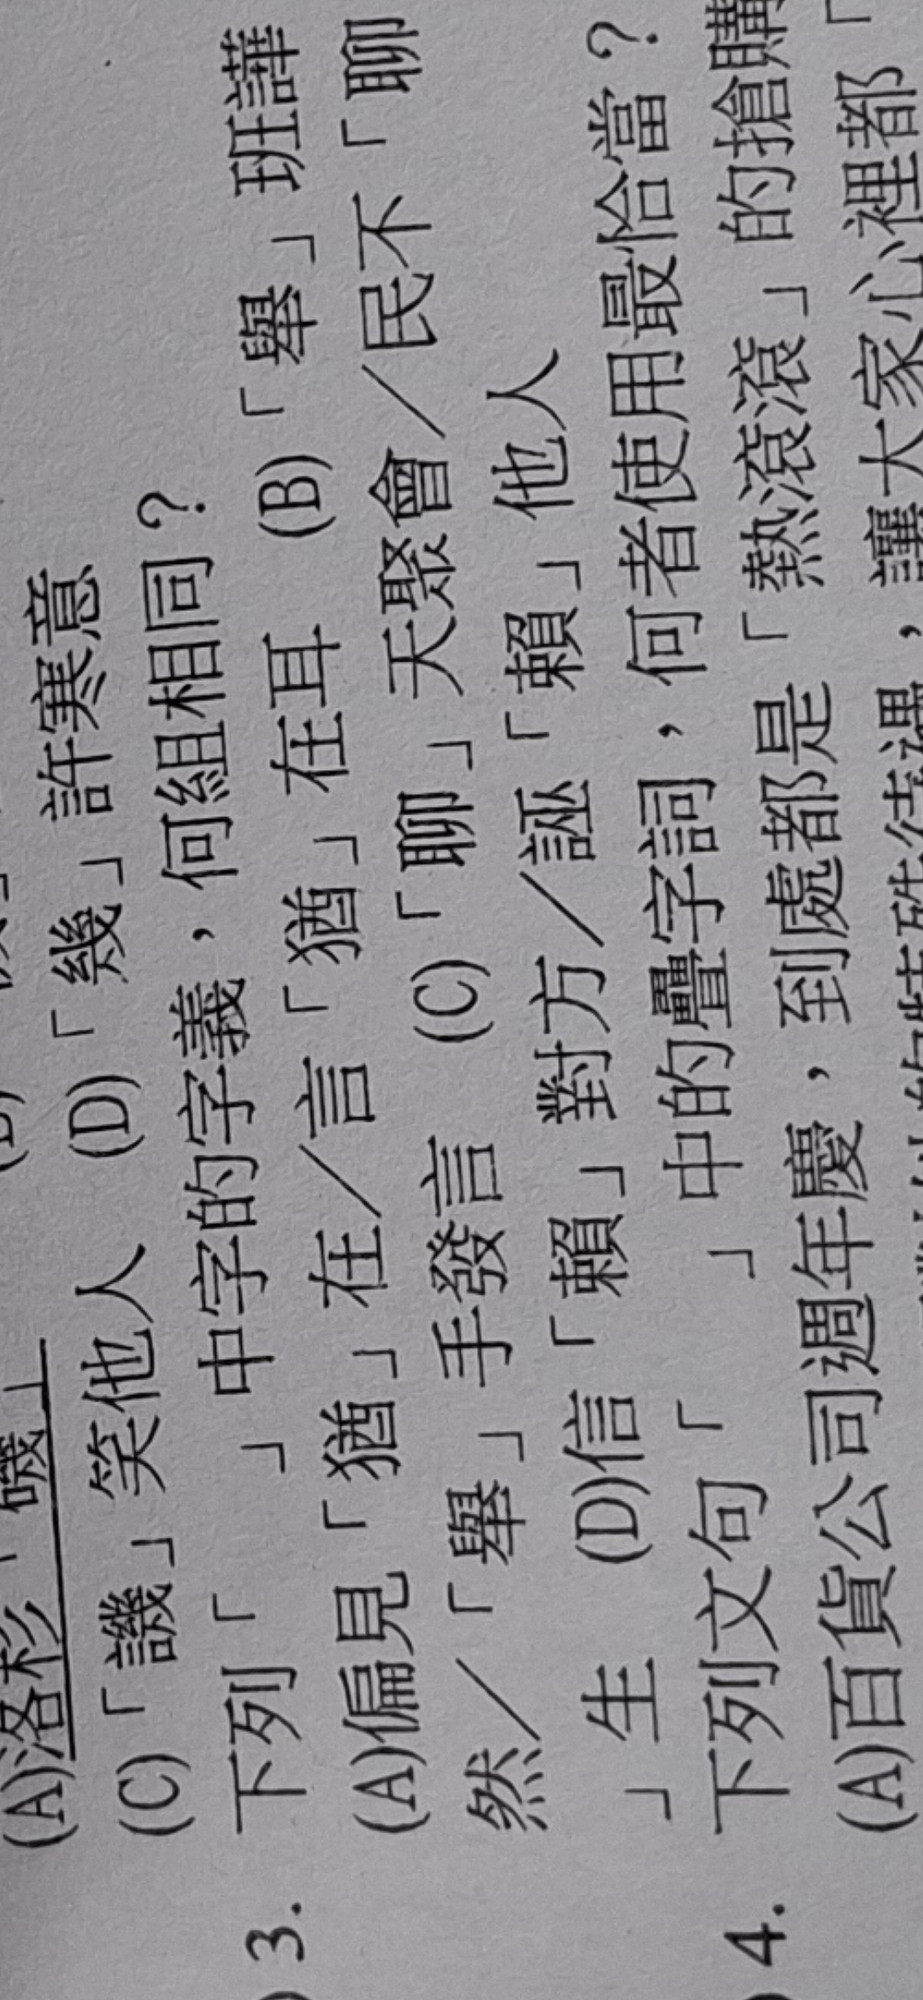 (A)洛杉「磯」
(C)「譏」笑他人 (D)「幾」許寒意
3. 下列「 」中字的字義，何組相同？
(A)偏見「猶」在／言「猶」在耳 (B)「舉」班譁
然／「舉」手發言 (C)「聊」天聚會／民不「聊
」生 (D)信「賴」對方／誣「賴」他人
4. 下列文句「 」中的疊字詞，何者使用最恰當？
(A)百貨公司週年慶，到處都是「熱滾滾」的搶購
特殊待遇，讓大家心裡都「